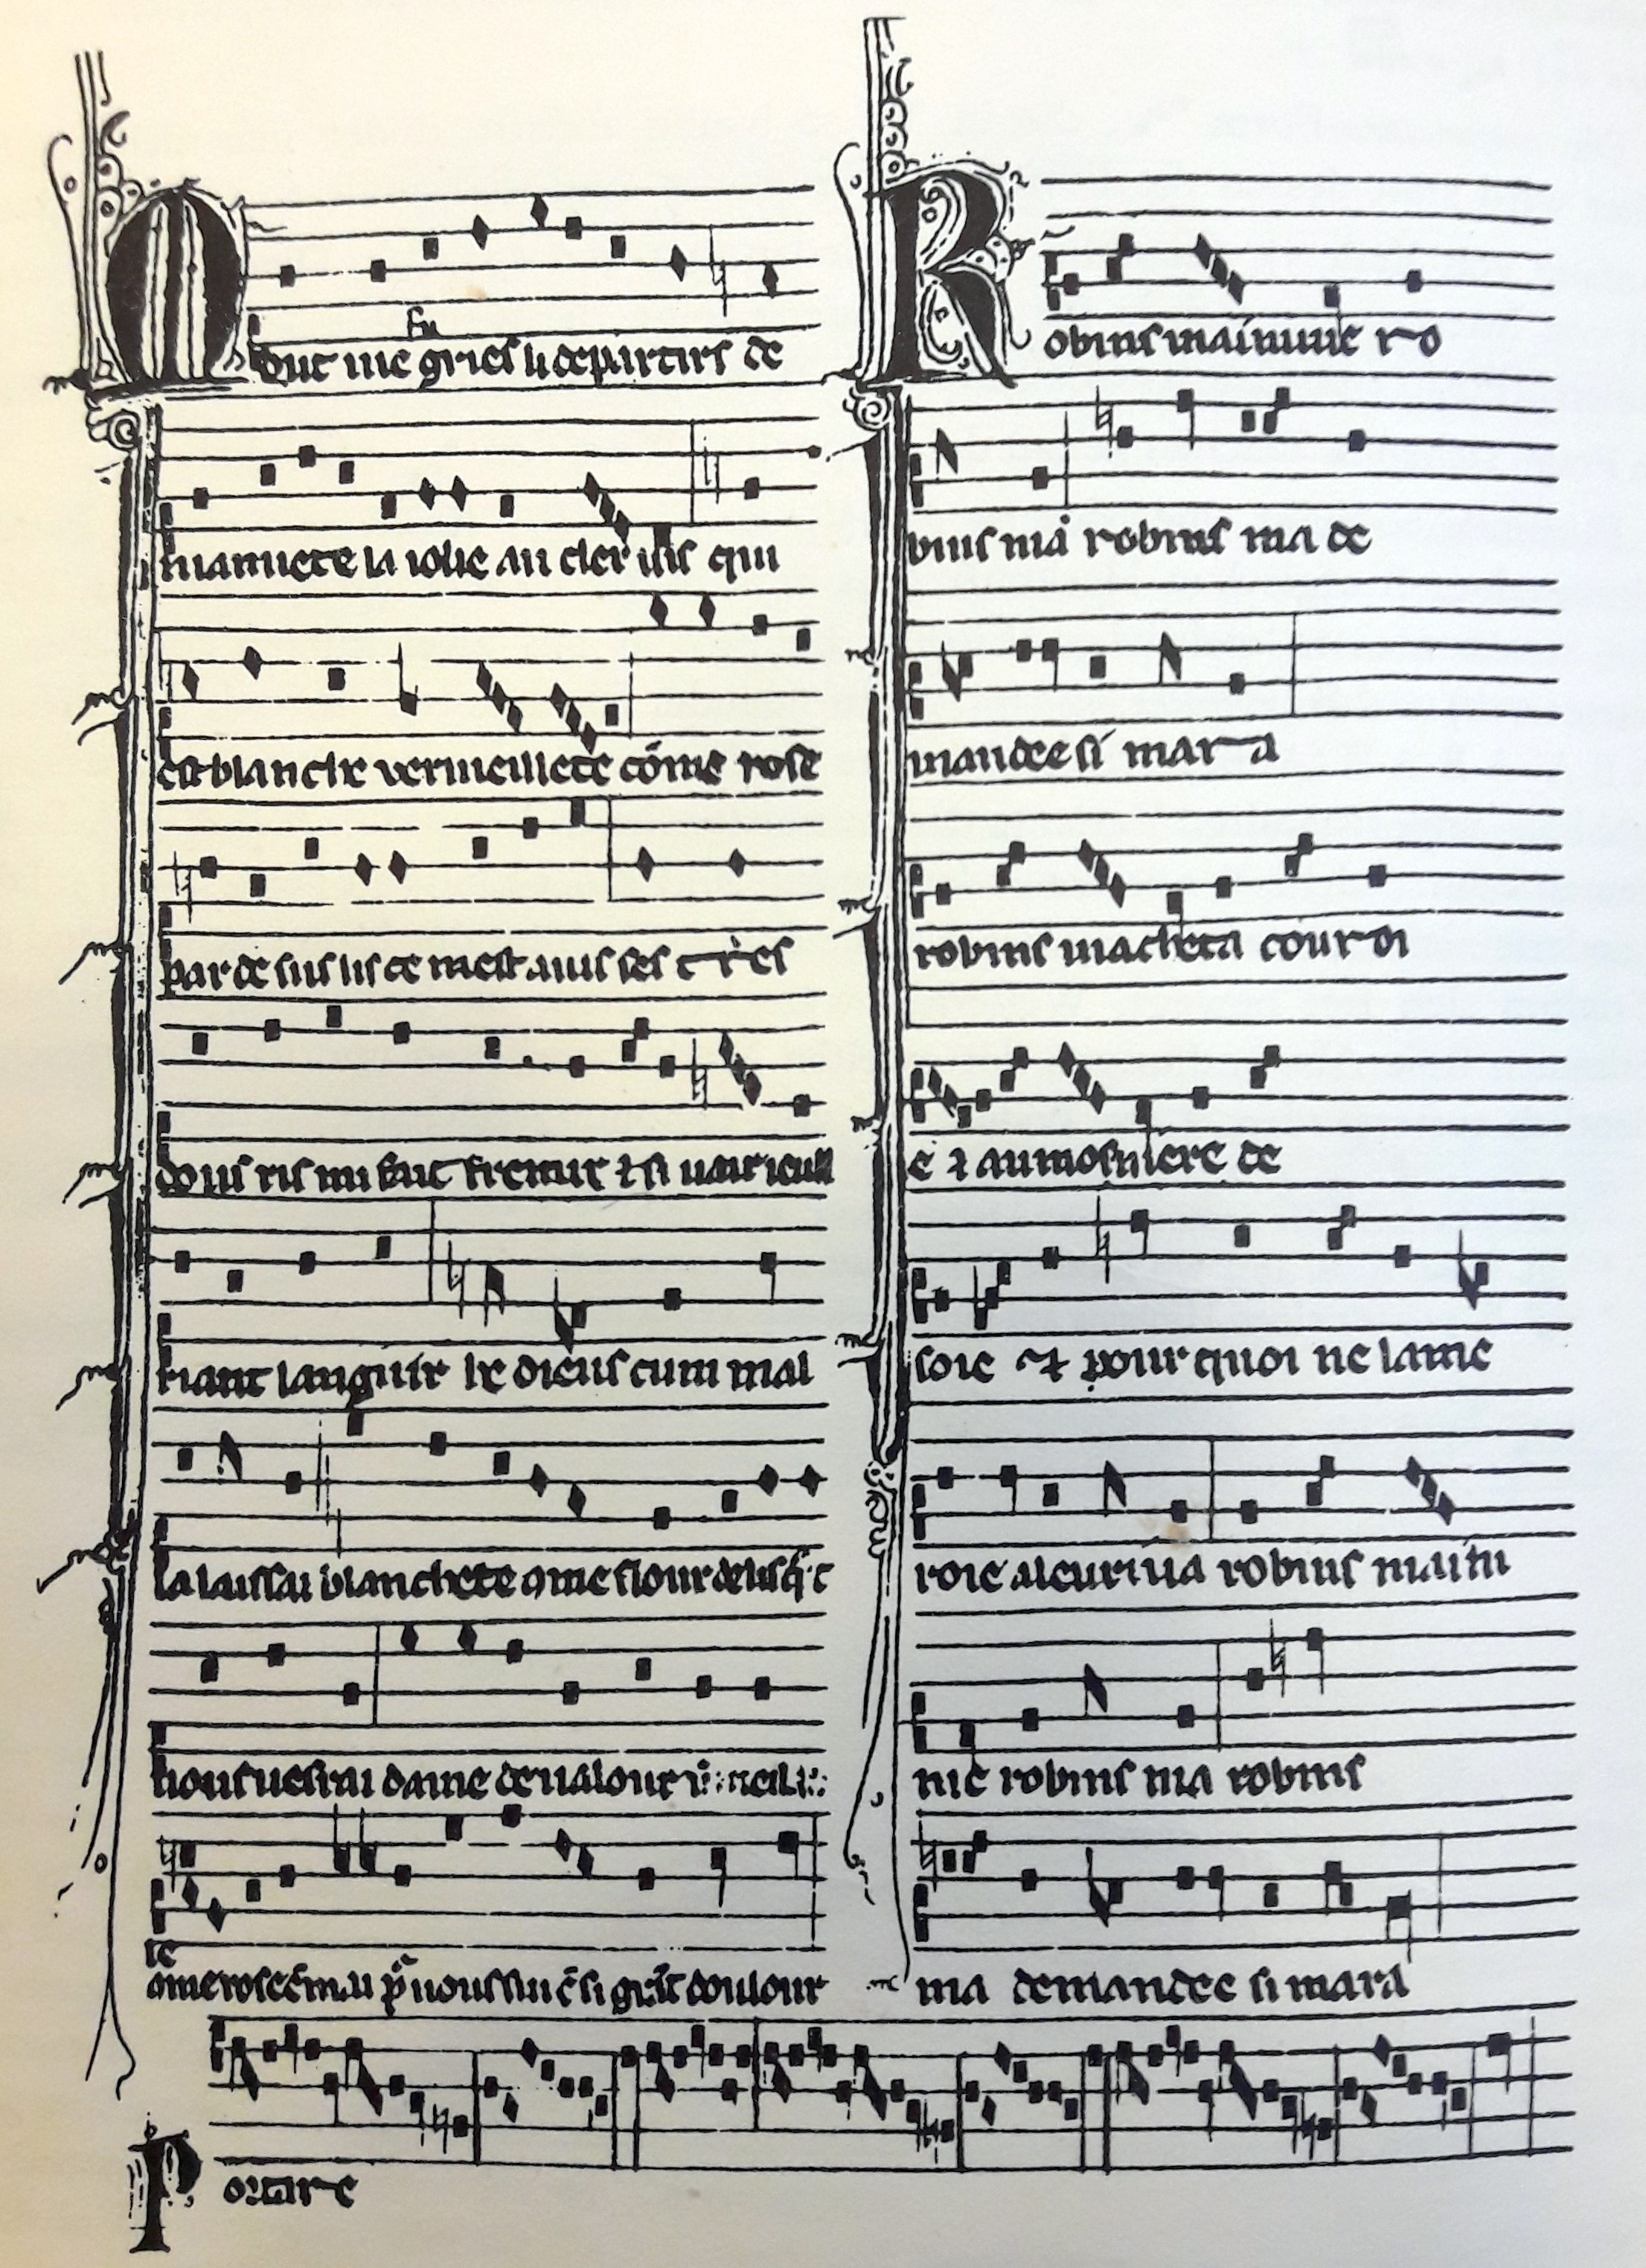 Mout me fu gries li departirs de
mamiete la iolie au cler uis qui
est blanche vermeillete cōme rose
par desus lis ce mest auis ses tres
dous ris mi fait fremir ⁊ si uair ieull
riant languir he dieus cum mal
la laissai blanchete ꝯme flour de lis
uous uerrai dame de ualour
ꝯme rose
si grāt doulour
Robins maimme ro
bins ma robins ma de
mandee si mara
robins macheta couroi
e ⁊ aumosniere de
soie ⁊ pour quoi ne lame
roie aleuriua robins maim
me robins ma robins
ma demandee si mara
Portare